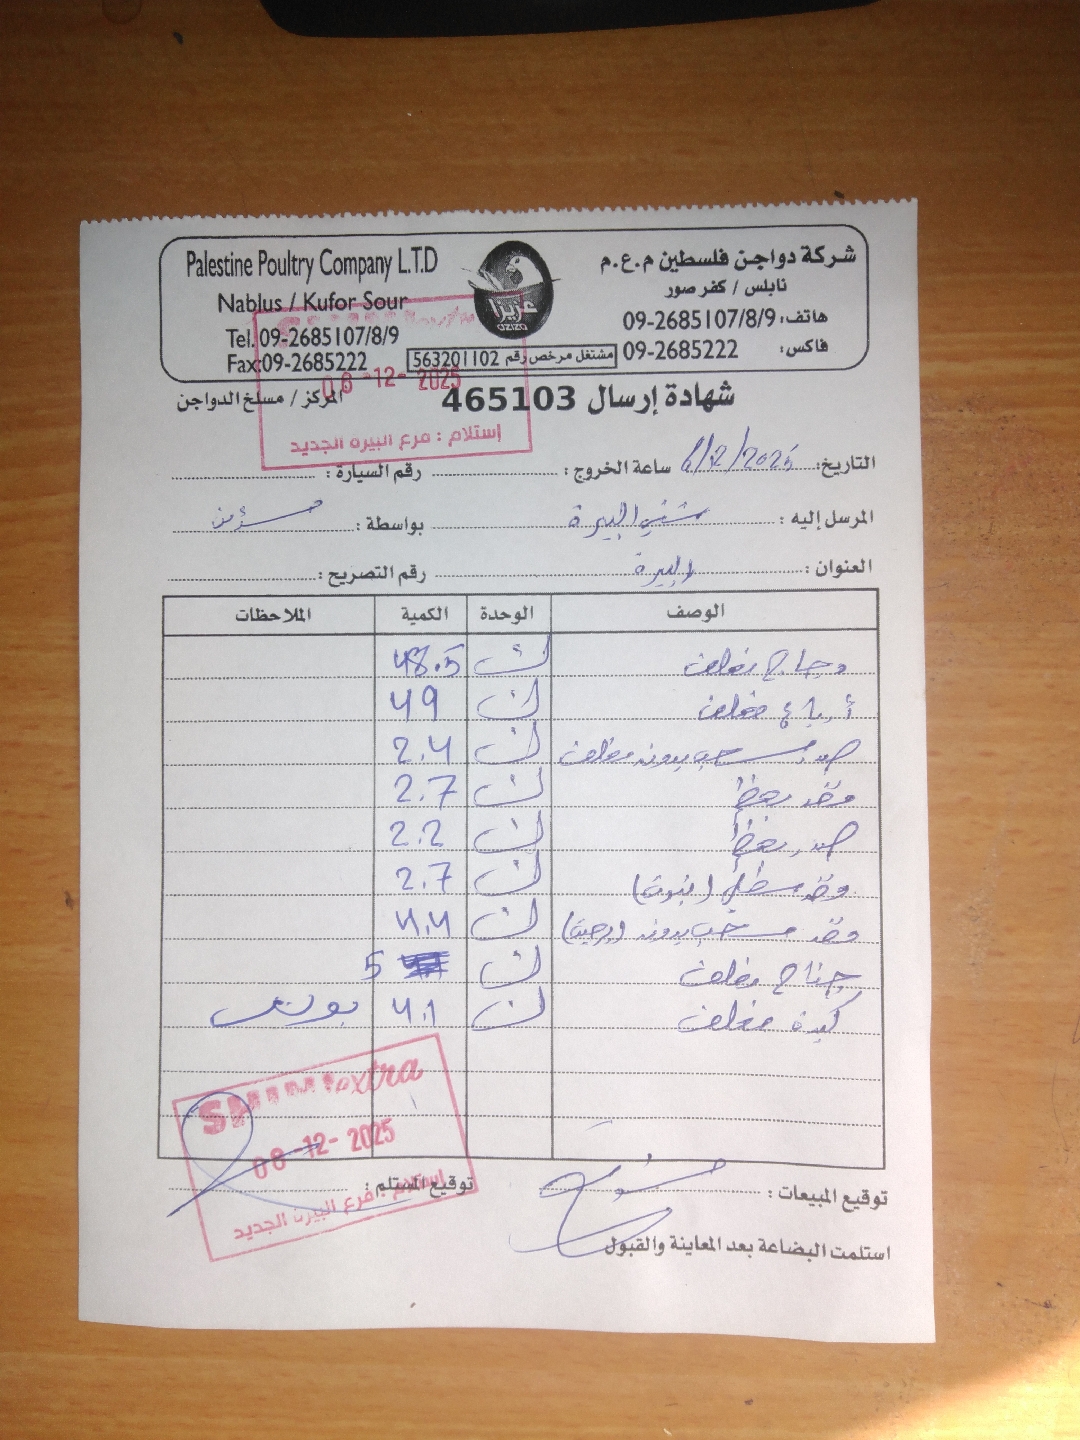 شركة دواجن فلسطين م.ع.م
نابلس / كفر صور
هاتف: 09-2685107/8/9
فاكس: 09-2685222
Palestine Poultry Company L.T.D
Nablus / Kufor Sour
Tel. 09-2685107/8/9
Fax:09-2685222
عزيزا
OZIZO
مشتغل مرخص رقم 563201102
شهادة إرسال 465103
المركز / مسلخ الدواجن
08-12-2025
إستلام : فرع البيرة الجديد
التاريخ: /12/2025 ساعة الخروج : رقم السيارة :
المرسل إليه : شني البيرة بواسطة :
العنوان : البيرة رقم التصريح :
الوصف الوحدة الكمية الملاحظات
دجاج مغلف ك 48.5
أرباع مغلف ك 49
صدر سحب بدون مغلف ك 2.4
فخذ بعظم ك 2.7
صدر بعظم ك 2.2
فخذ ك 2.7
فخذ سحب بدون ك 4.4
جناح مغلف ك 5
كبدة مغلف ك 4.1
SHINI extra
08-12-2025
إستلام : فرع البيرة الجديد
توقيع المبيعات : توقيع المستلم :
استلمت البضاعة بعد المعاينة والقبول